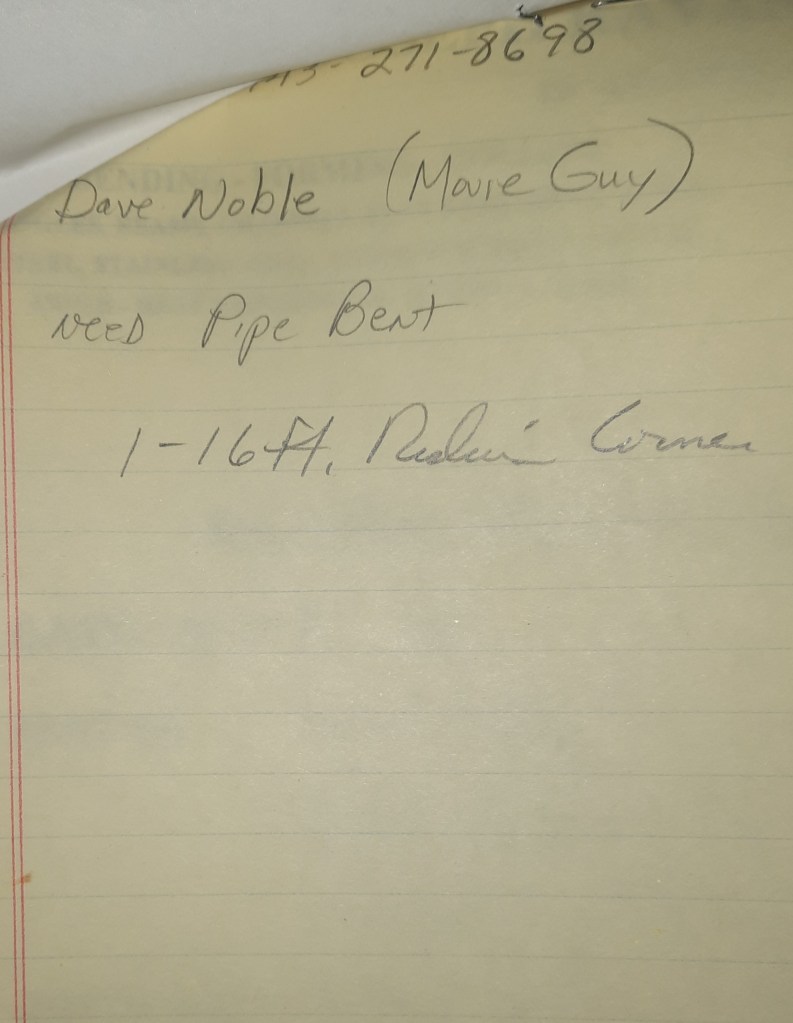 271-8698
Dave Noble (Movie Guy)
NEED Pipe Bent
1-16 ft. Radius Corner